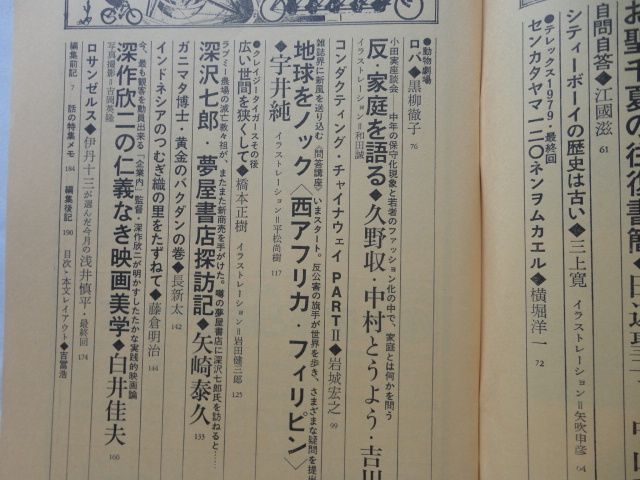 お聖千夏の往復書簡◆田辺聖子・中山
自問自答◆江國滋 61
シティーボーイの歴史は古い◆三上寛 イラストレーション＝矢吹申彦 64
●テレックス1979・最終回
センカタヤマ一二〇ネンヲムカエル◆横堀洋一 72
●動物劇場
ロバ◆黒柳徹子 76
小田実座談会――中年の保守化現象と若者のファッション化の中で、家庭とは何かを問う
反・家庭を語る◆久野収・中村とうよう・吉川
イラストレーション＝和田誠
コンダクティング・チャイナウェイ PARTⅡ◆岩城宏之 99
雑誌界に新風を送り込む〈問答講座〉いまスタート。反公害の旗手が世界を歩き、さまざまな疑問を提出
地球をノック〈西アフリカ・フィリピン〉
◆宇井純 イラストレーション＝平松尚樹 117
●クレイジータイガースその後
広い世間を狭くして◆橋本正樹 イラストレーション＝岩田健三郎 125
ラブミー農場の滅亡教々祖が、またまた新商売を手がけた。噂の夢屋書店に深沢七郎氏を訪ねると……
深沢七郎・夢屋書店探訪記◆矢崎泰久 133
ガニマタ博士・黄金のバクダンの巻◆長新太 142
インドネシアのつむぎ織の里をたずねて◆藤倉明治 144
今、最も観客を動員出来る「企業内」監督・深作欣二が明かすしたたかな実践的映画論
深作欣二の仁義なき映画美学◆白井佳夫 160
写真撮影＝吉岡英隆
ロサンゼルス◆伊丹十三が選んだ今月の浅井慎平・最終回 174
編集前記 7 話の特集メモ 184 編集後記 190 目次・本文レイアウト◆吉富浩